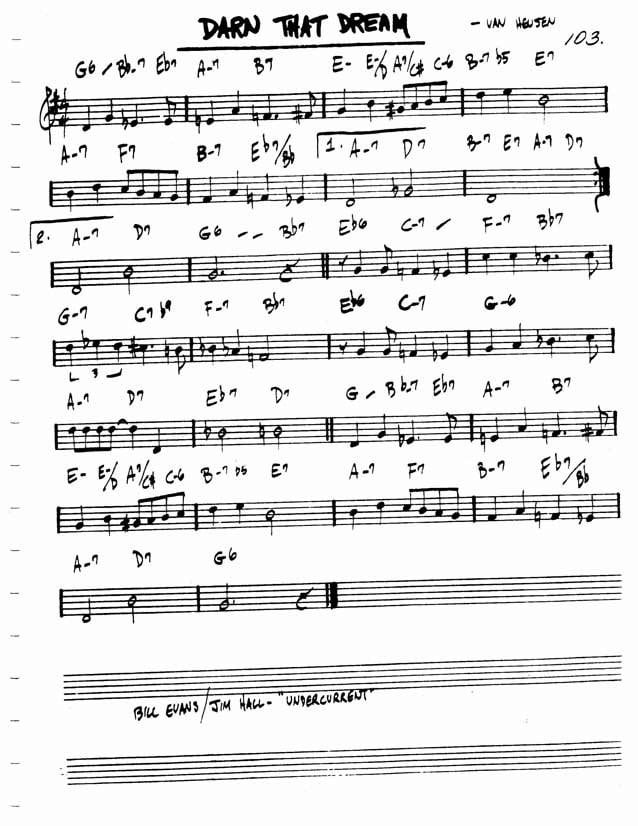 DARN THAT DREAM
- VAN HEUSEN
103.
G6 / Bb-7 Eb7 A-7 B7 E- E-/D A7/C# C-6 B-7 b5 E7
A-7 F7 B-7 Eb7/Bb 1. A-7 D7 B-7 E7 A-7 D7
2. A-7 D7 G6 - - Bb7 Eb6 C-7 / F-7 Bb7
G-7 C7 b9 F-7 Bb7 Eb6 C-7 G-6
3
A-7 D7 Eb7 D7 G / Bb-7 Eb7 A-7 B7
E- E-/D A7/C# C-6 B-7 b5 E7 A-7 F7 B-7 Eb7/Bb
A-7 D7 G6
BILL EVANS/JIM HALL- "UNDERCURRENT"